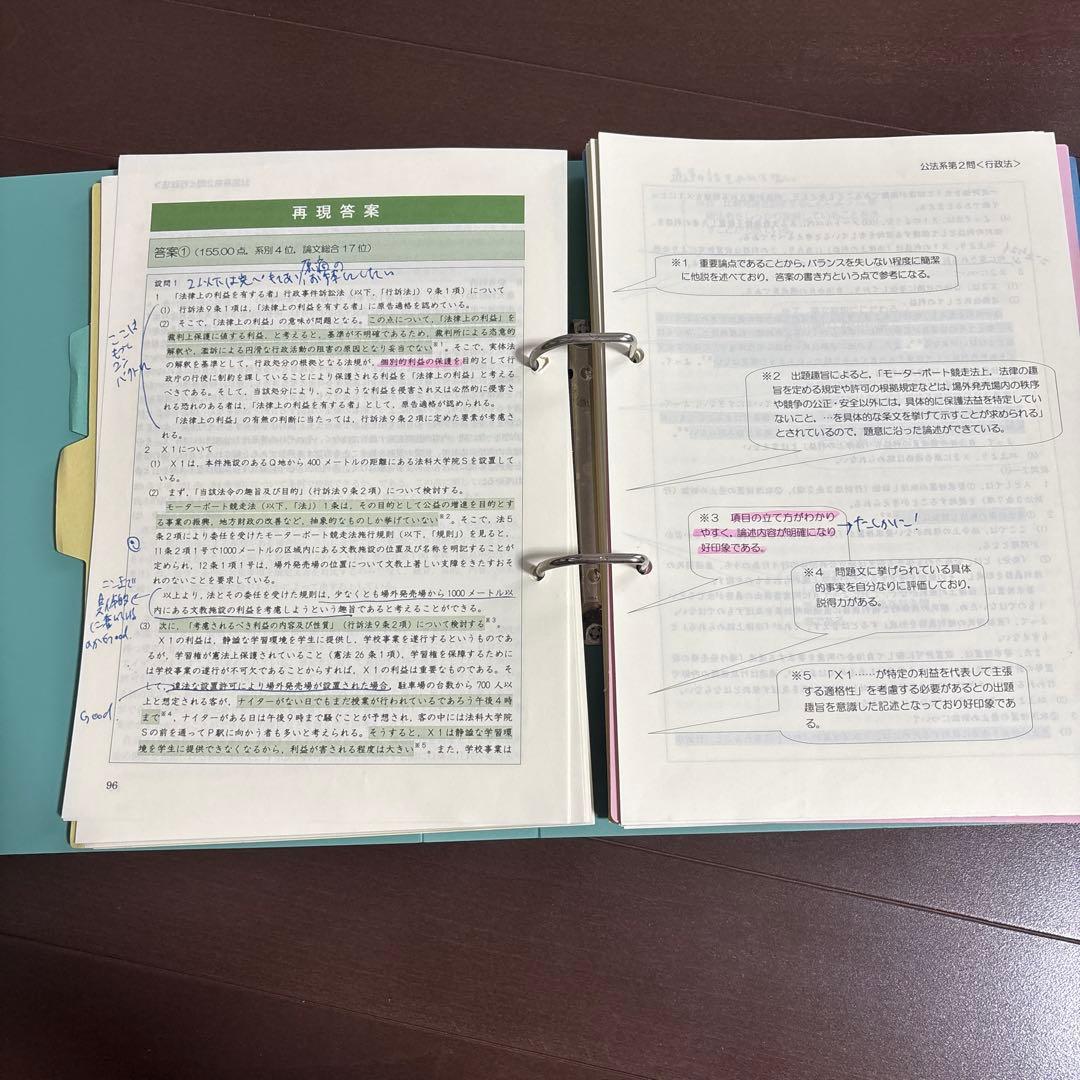 再現答案
答案① (155.00点,系別4位,論文総合17位)
設問1
1 「法律上の利益を有する者」行政事件訴訟法(以下,「行訴法」)9条1項)について
(1) 行訴法9条1項は,「法律上の利益を有する者」に原告適格を認めている。
(2) そこで,「法律上の利益」の意味が問題となる。この点について,「法律上の利益」を
裁判上保護に値する利益,と考えると,基準が不明確であるため,裁判所による恣意的
解釈や,濫訴による円滑な行政活動の阻害の原因となり妥当でない※1。そこで,実体法
の解釈を基準として,行政処分の根拠となる法規が,個別的利益の保護を目的として行
政庁の行使に制約を課していることにより保護される利益を「法律上の利益」と考える
べきである。そして,当該処分により,このような利益を侵害され又は必然的に侵害さ
れる恐れのある者は,「法律上の利益を有する者」として,原告適格が認められる。
「法律上の利益」の有無の判断に当たっては,行訴法9条2項に定めた要素が考慮さ
れる。
2 X1について
(1) X1は,本件施設のあるQ地から400メートルの距離にある法科大学院Sを設置して
いる。
(2) まず,「当該法令の趣旨及び目的」(行訴法9条2項)について検討する。
モーターボート競走法(以下,「法」)1条は,その目的として公益の増進を目的とす
る事業の振興,地方財政の改善など,抽象的なものしか挙げていない※2。そこで,法5
条2項により委任を受けたモーターボート競走法施行規則(以下,「規則」)を見ると,
11条2項1号で1000メートルの区域内にある文教施設の位置及び名称を明記することが
定められ,12条1項1号は,場外発売場の位置について文教上著しい支障をきたすおそ
れのないことを要求している。
以上より,法とその委任を受けた規則は,少なくとも場外発売場から1000メートル以
内にある文教施設の利益を考慮しようという趣旨であると考えることができる。
(3) 次に,「考慮されるべき利益の内容及び性質」(行訴法9条2項)について検討する※3
X1の利益は,静謐な学習環境を学生に提供し,学校事業を遂行するというものであ
るが,学習権が憲法上保護されていること(憲法26条1項),学習権を保障するためには
学校事業の遂行が不可欠であることからすれば,X1の利益は重要なものである。そ
して,違法な設置許可により場外発売場が設置された場合,駐車場の台数から700人以
上と想定される客が,ナイターがない日でもまだ授業が行われているであろう午後4時
まで※4,ナイターがある日は午後9時まで騒ぐことが予想され,客の中には法科大学院
Sの前を通ってP駅に向かう者も多いと考えられる。そうすると,X1は静謐な学習環
境を学生に提供できなくなるから,利益が害される程度は大きい※5。また,学校事業は
Good
96
公法系第2問<行政法>
※1 重要論点であることから,バランスを失しない程度に簡潔
に他説を述べており,答案の書き方という点で参考になる。
※2 出題趣旨によると,「モーターボート競走法上,法律の趣
旨を定める規定や許可の根拠規定などは,場外発売場内の秩序
や競争の公正・安全以外には,具体的に保護法益を特定してい
ないこと,…を具体的な条文を挙げて示すことが求められる」
とされているので,題意に沿った論述ができている。
※3 項目の立て方がわかり
やすく,論述内容が明確になり
好印象である。
たしかに!
※4 問題文に挙げられている具体
的事実を自分なりに評価しており,
説得力がある。
※5 「X1……が特定の利益を代表して主張
する適格性」を考慮する必要があるとの出題
趣旨を意識した記述となっており好印象であ
る。